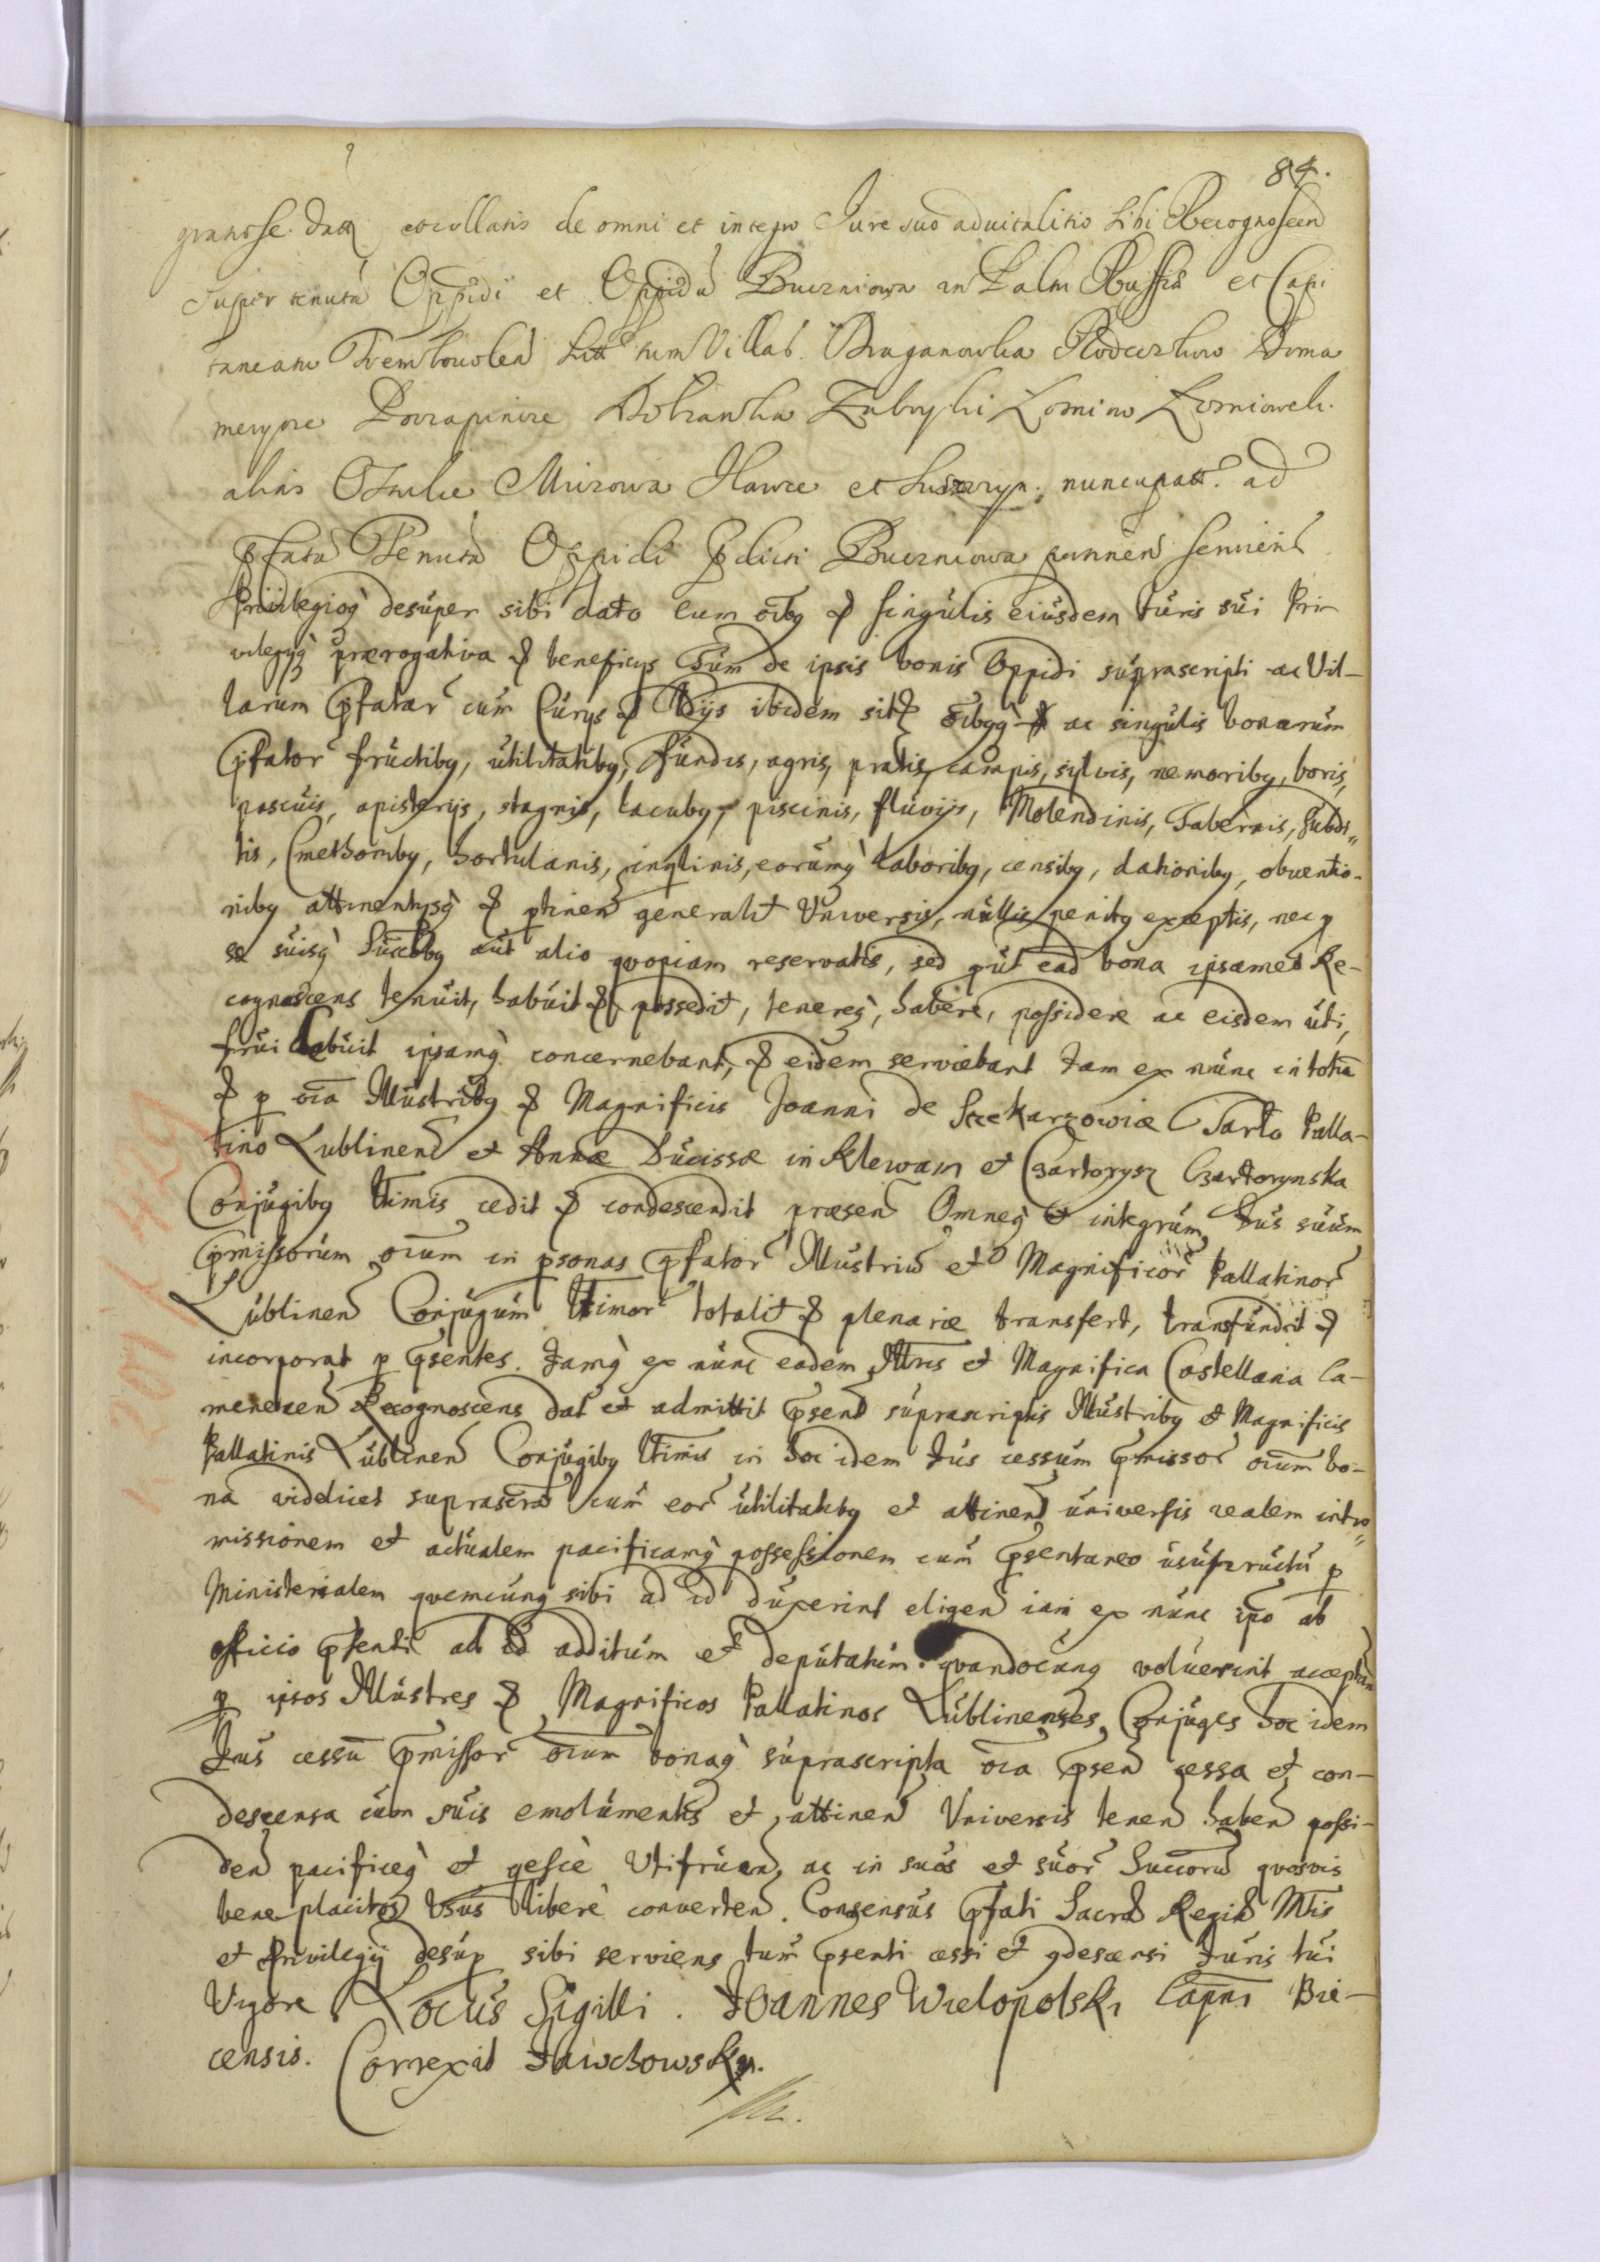 84.
de omni et integro Jure suo advitalitio sibi Recognoscen
super tenuta Oppidi et Oppidu Bucniowa in Palm Russiae et Capi
taneatu Trembowlen sitt tum Villas Draganowka
alias Mirowa Hawce et nuncupatt. ad
pfata Tenuta Oppidi pdicti Bucniowa servien
Privilegioq desuper sibi dato cum oibq & singulis eiusdem Juris sui Pri
vilegijq praerogativa & beneficijs Tum de ipsis bonis Oppidi suprascripti ac Vil-
larum pfatar cum Curijs & ibidem sitt oibqq ac singulis bonorum
pfator fructibq, utilitatibq, fundis, agris, pratis, campis, sylvis, nemoribq, boris,
pascuis, apisterijs, stagnis, lacubq, piscinis, fluvijs, Molendinis, Tabernis, subdi„
tis, Cmethonibq, hortulanis, inqlinis, eorumq laboribq, censibq, dationibq, obventio-
nibq attinentijsq & ptinen generalit Universis, nullis penitq exceptis, nec p
se suisq Succbq aut alio quopiam reservatis, sed put ead bona ipsamet Re-
cognoscens tenuit, habuit & possedit, tenereq, habere, possidere ac eisdem uti,
frui debuit ipsamq concernebant, & eidem serviebant Jam ex nunc in toto
& p oia Illustribq & Magnificis Joanni de Szczekarzowice Tarło Palla-
tino Lublinen et Annae Ducissae in Klewam et Czartorysz Czartorynska
Conjugibq Ltimis cedit & condescendit praesen Omneq et integrum Jus suum
pmissorum oium in psonas pfator Illustriu et Magnificor Pallatinor
Lublinen Conjugum Ltimor totalit & plenarie transfert, transfundit &
incorporat p psentes. Jamq ex nunc eadem Illtris et Magnifica Castellana Ca-
menecen Recognoscens dat et admittit psent suprascriptis Illustribq et Magnificis
Pallatinis Lublinen Conjugibq Ltimis in hoc idem Jus cessum pmissor oium bo-
na videlicet suprascrta cum eor utilitatibq et attinen universis realem intro„
missionem et actualem pacificamq possessionem cum psentaneo usufructu p
Ministerialem quemcunq sibi ad id duxerint eligen iam ex nunc ipo ab
officio psenti ad id additum et deputatum quandocunq voluerint
p ipsos Illustres & Magnificos Pallatinos Lublinenses Conjuges hoc idem
Jus cessu pmissor oium bonaq suprascripta oia psen cessa et con-
descensa cum suis emolumentis et attinen Universis tenen haben possi-
den pacificeq et Utifruen, ac in suos et suor Succoru quosvis
beneplacitos Usus libere converten. Consensus pfati Sacrae Regiae Mtis
et Privilegij desup sibi serviens tum psenti cessi et qdescensi Juris sui
Vigore Locus Sigilli. Joannes Wielopolski Capns Bie-
censis. Correxit Jawchowsky.